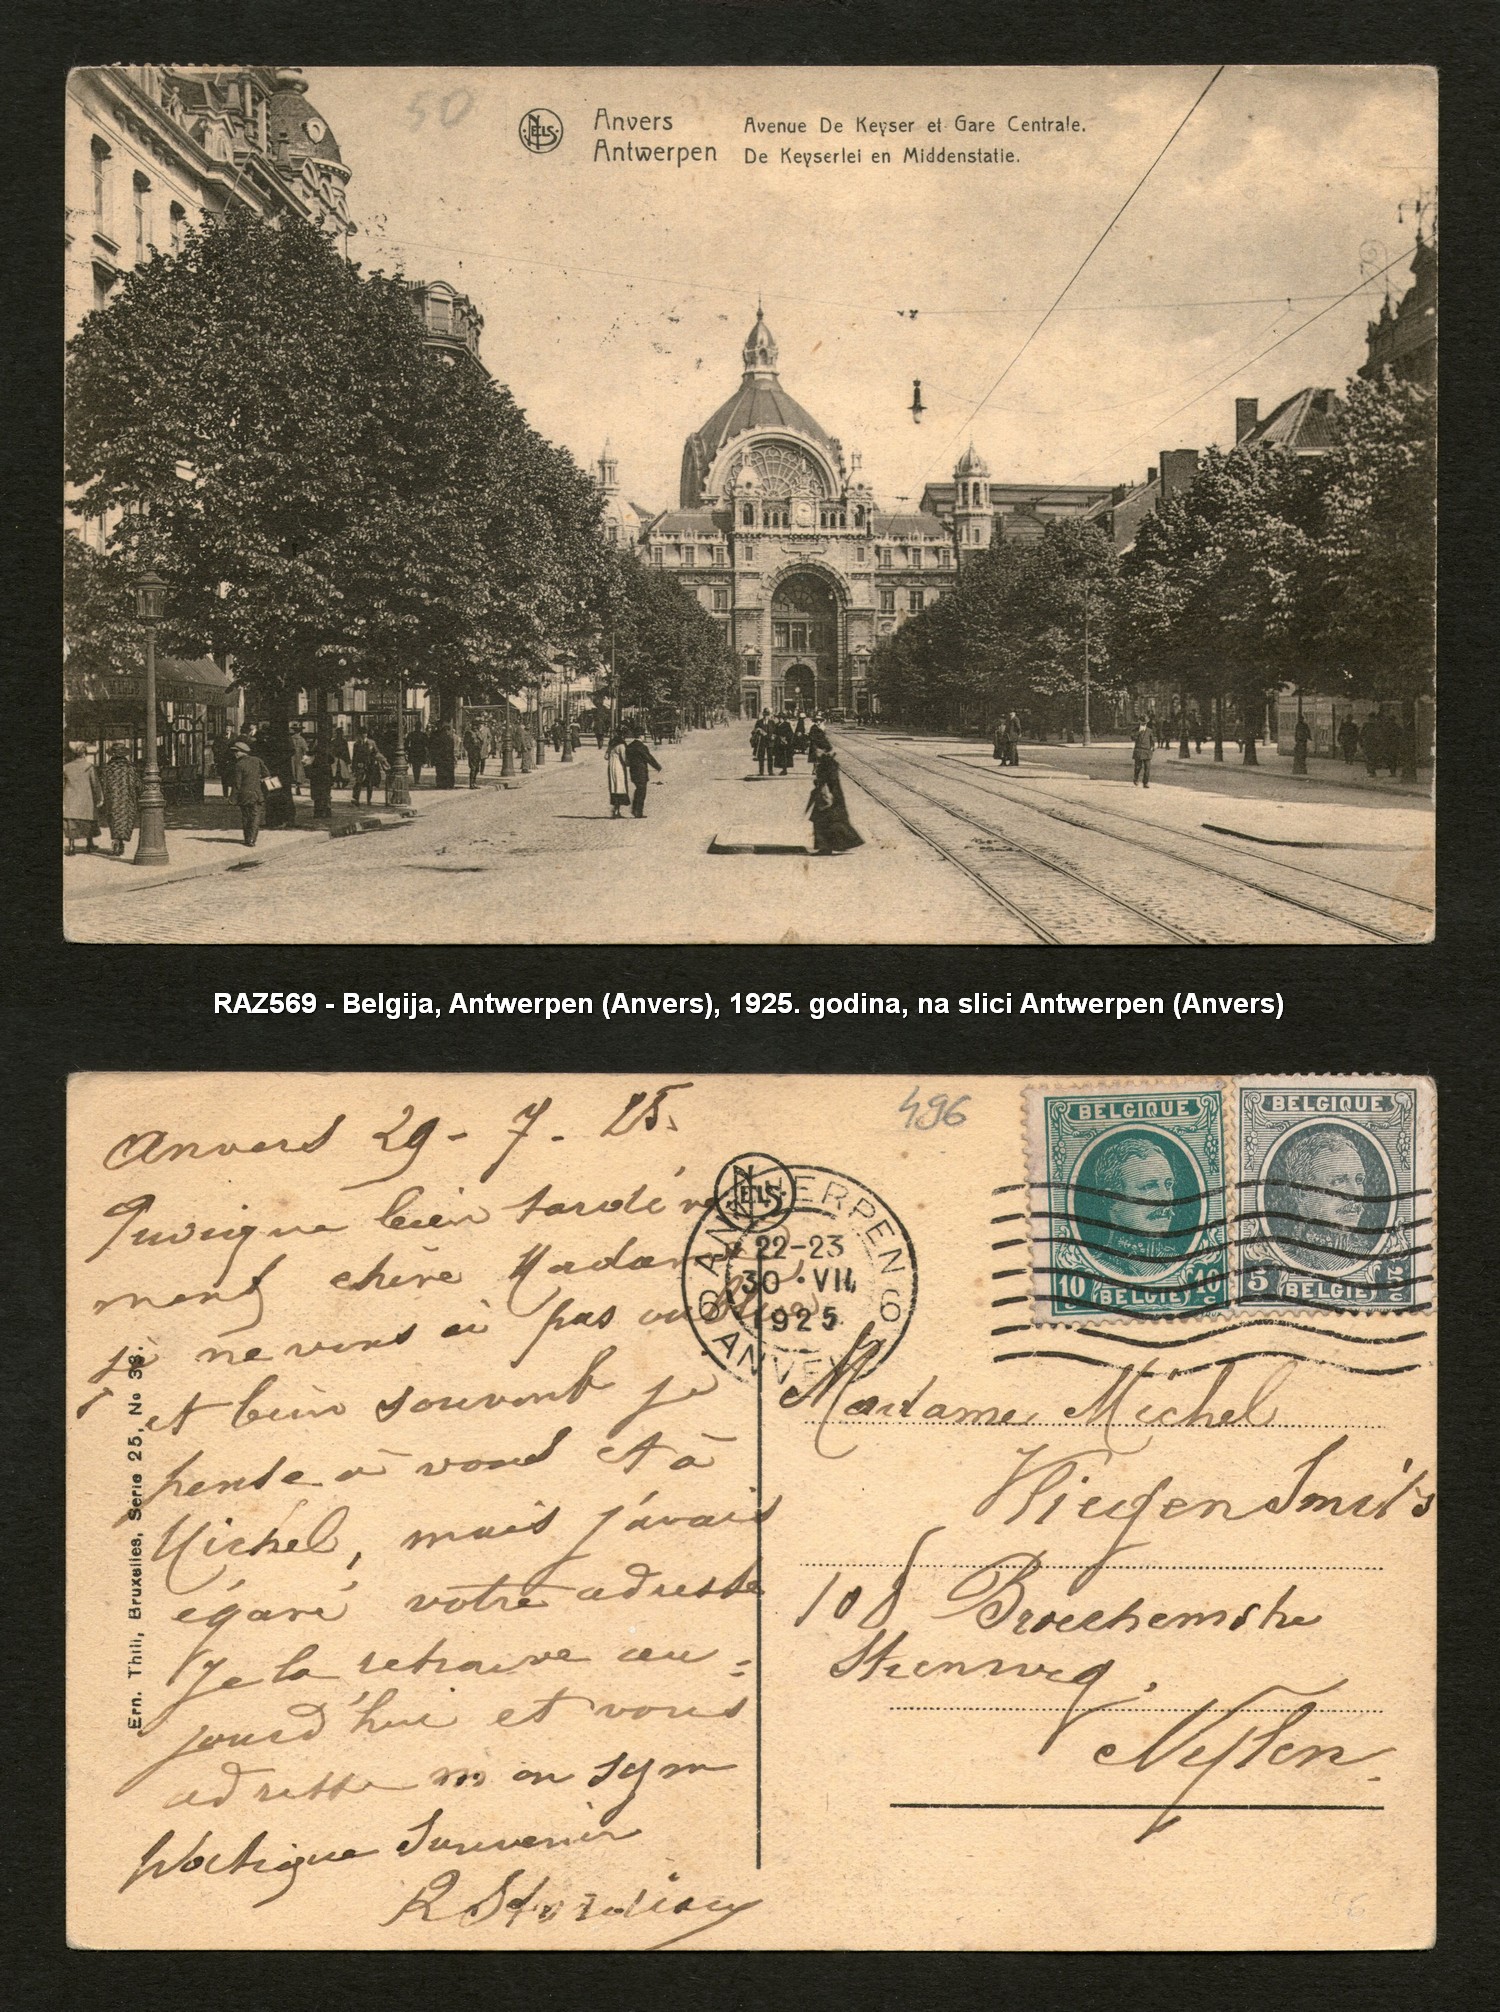 50
NELS
Anvers Avenue De Keyser et Gare Centrale.
Antwerpen De Keyserlei en Middenstatie.
RAZ569 - Belgija, Antwerpen (Anvers), 1925. godina, na slici Antwerpen (Anvers)
Anvers 29-7-25.
Quoique bien tardive
ment chère Madame
je ne vous ai pas oubliée
et bien souvent je
pense à vous et à
Michel, mais j'avais
égaré votre adresse
Je la retrouve au=
jourd'hui et vous
adresse mon sym
pathique souvenir
R
Ern. Thill, Bruxelles, Série 25, No 33.
496
NELS
6 ANTWERPEN 6
22-23
30 · VII
1925
ANVERS
BELGIQUE BELGIQUE
10 c 10 c 5 c 5 c
BELGIE BELGIE
Madame Michel
Smits
108 Broechemsche
Steenweg,
Nylen.